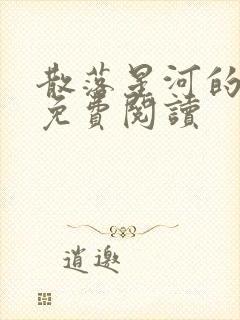 散落星河的
免費閱讀
逍邀